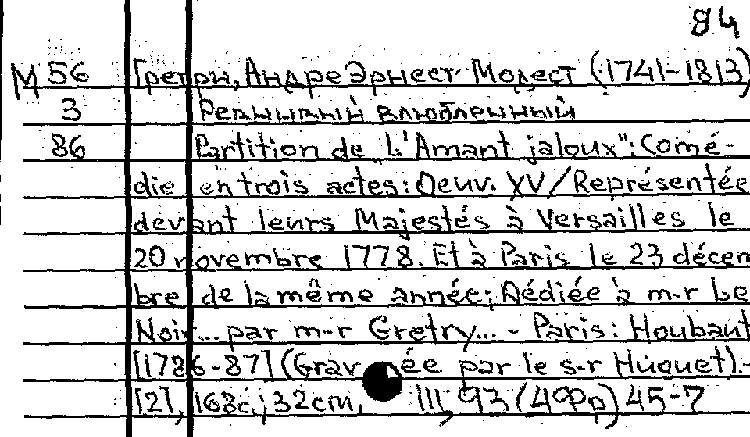 84
М 56 Гретри, Андре Эрнест Модест (1741-1813)
3 Ревнивый влюбленный
86 Partition de L'Amant jaloux": Comé-
die en trois actes: Oeuv. XV/Représentée
devant leurs Majestés à Versailles le
20 novembre 1778. Et à Paris le 23 décem
bre de la même année; Dédiée à m-r Le
Noir... par m-r Gretry... - Paris: Houbaut
[1786-87] (Gravée par le s-r Huguet).-
[2], 168c.; 32cm, III, 93 (40Рр) 45-7